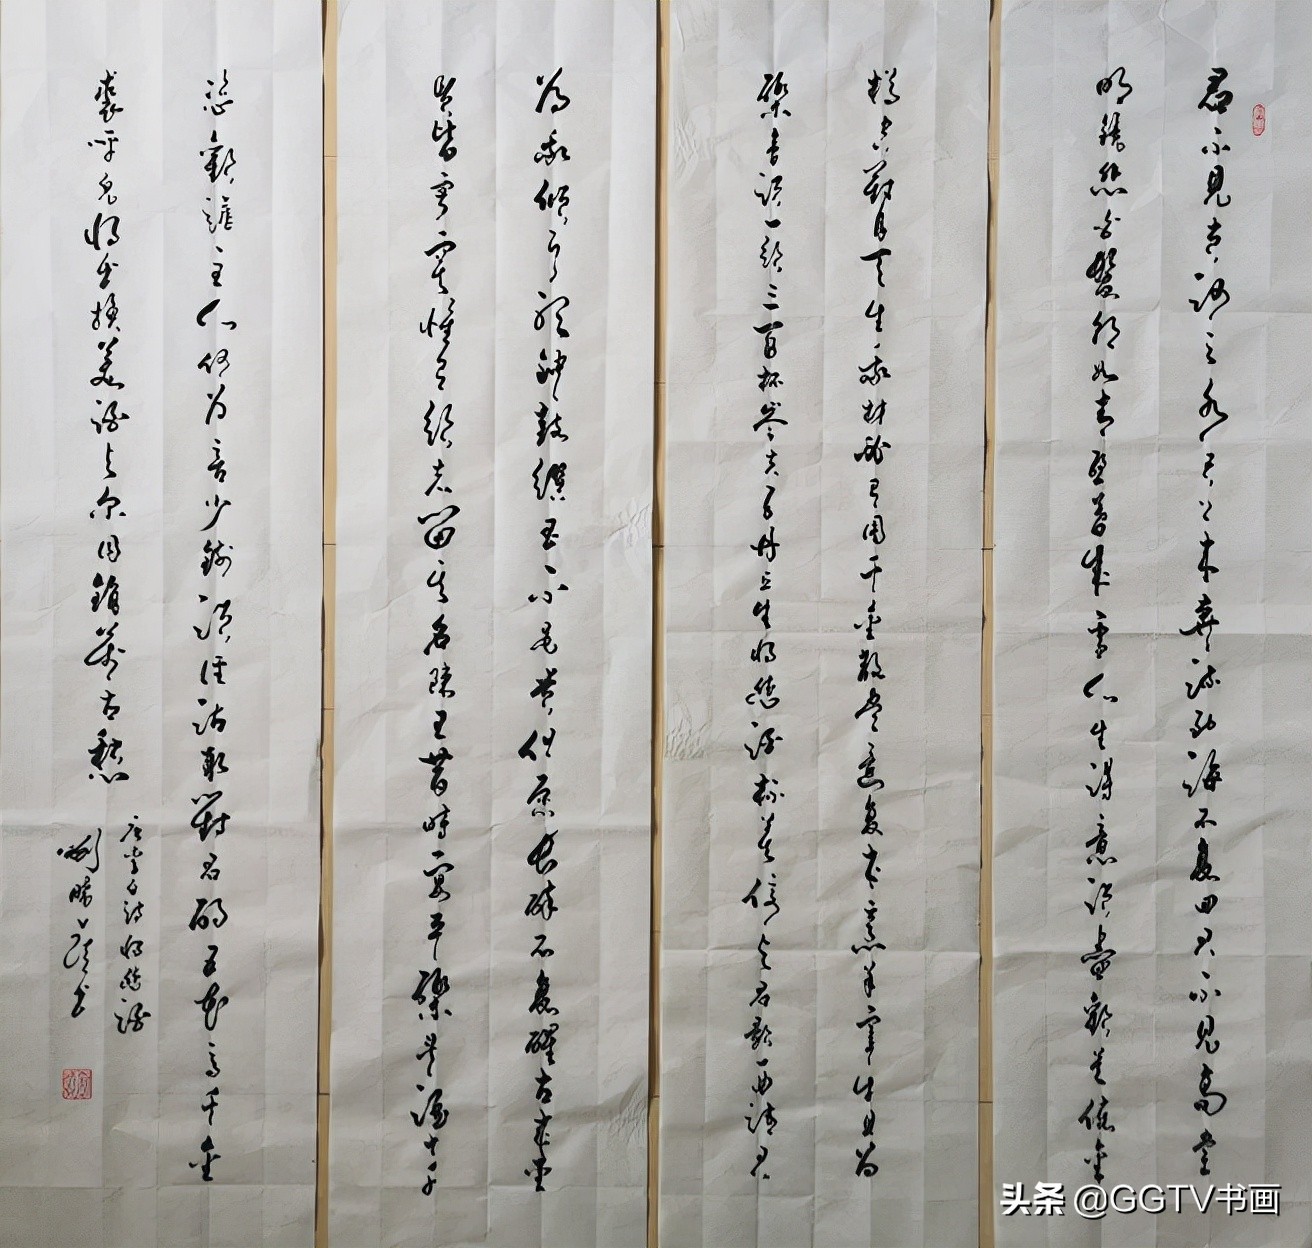 君不見黃河之水天上來奔流到海不復回君不見高堂
明鏡悲白髮朝如青絲暮成雪人生得意須盡歡莫使金
樽空對月天生我材必有用千金散盡還復來烹羊宰牛且為
樂會須一飲三百杯岑夫子丹丘生將進酒杯莫停與君歌一曲請君
為我傾耳聽鐘鼓饌玉不足貴但願長醉不願醒古來聖
賢皆寂寞惟有飲者留其名陳王昔時宴平樂斗酒十千
恣歡謔主人何為言少錢須徑沽取對君酌五花馬千金
裘呼兒將出換美酒與爾同銷萬古愁
唐李白詩將進酒
書
头条 @GGTV书画